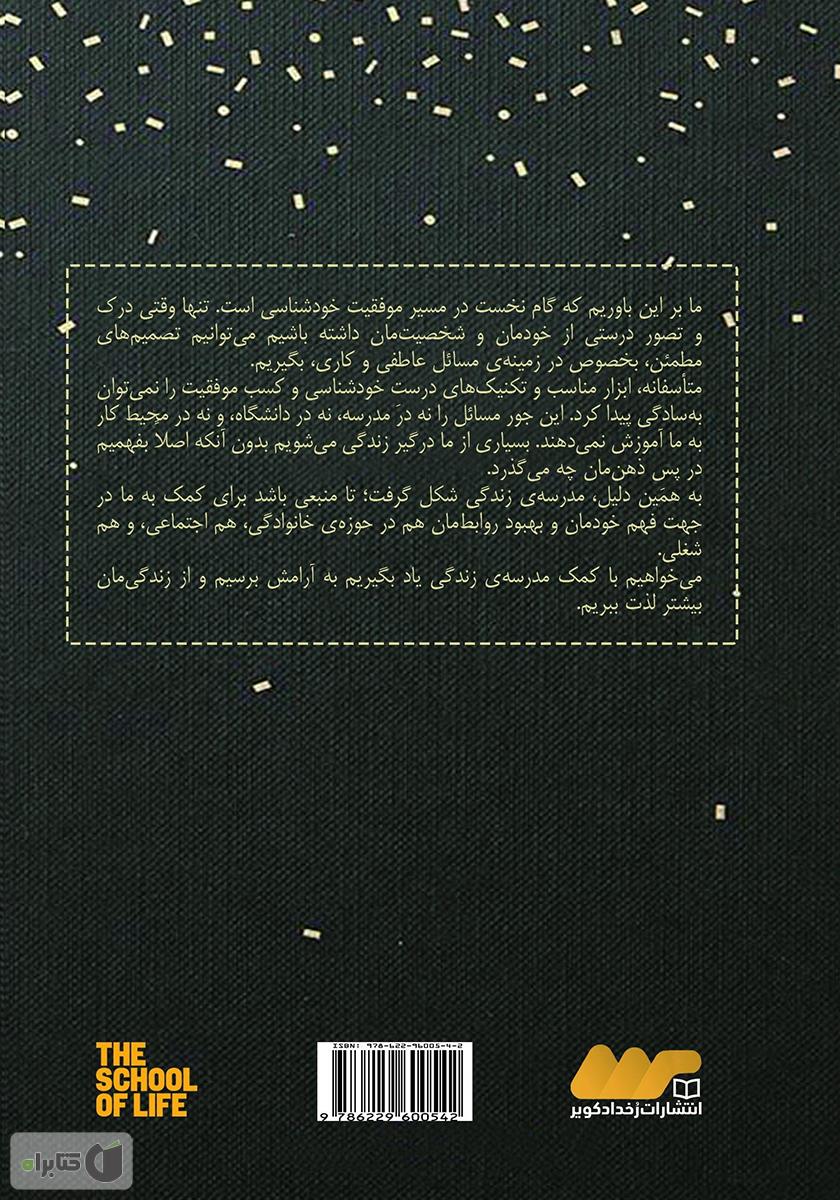 ما بر این باوریم که گام نخست در مسیر موفقیت خودشناسی است. تنها وقتی درک
و تصور درستی از خودمان و شخصیت‌مان داشته باشیم می‌توانیم تصمیم‌های
مطمئن، بخصوص در زمینه‌ی مسائل عاطفی و کاری، بگیریم.
متأسفانه، ابزار مناسب و تکنیک‌های درست خودشناسی و کسب موفقیت را نمی‌توان
به‌سادگی پیدا کرد. این جور مسائل را نه در مدرسه، نه در دانشگاه، و نه در محیط کار
به ما آموزش نمی‌دهند. بسیاری از ما درگیر زندگی می‌شویم بدون آنکه اصلاً بفهمیم
در پس ذهن‌مان چه می‌گذرد.
به همین دلیل، مدرسه‌ی زندگی شکل گرفت؛ تا منبعی باشد برای کمک به ما در
جهت فهم خودمان و بهبود روابط‌مان هم در حوزه‌ی خانوادگی، هم اجتماعی، و هم
شغلی.
می‌خواهیم با کمک مدرسه‌ی زندگی یاد بگیریم به آرامش برسیم و از زندگی‌مان
بیشتر لذت ببریم.
THE
SCHOOL
OF LIFE
ISBN: 978-622-96005-4-2
9 786229 600542
انتشارات رُخداد کویر
کتابراه